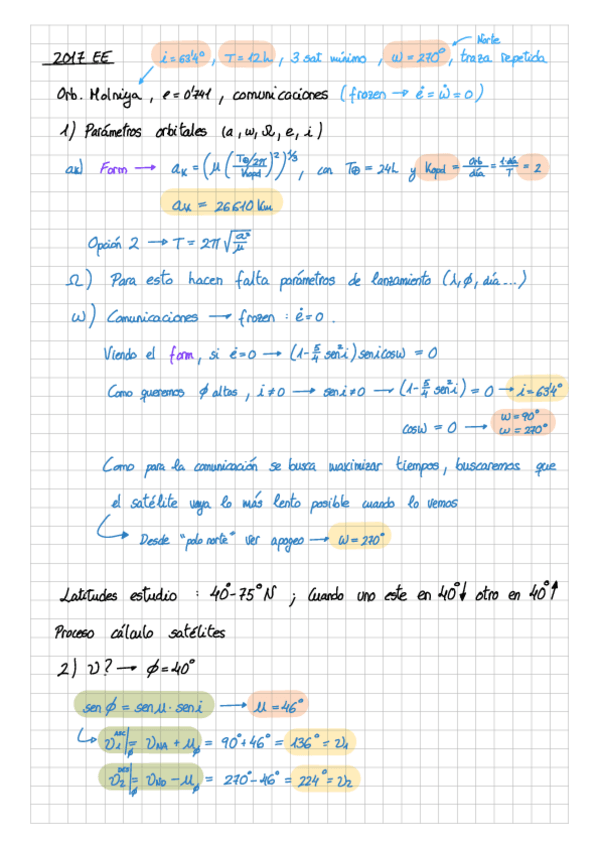 2017 EE i=63'4° , T=12h , 3 sat mínimo , ω=270° , traza repetida
Norte
Orb. Molniya , e=0'741 , comunicaciones (frozen → ė=ω̇=0)
1) Parámetros orbitales (a, ω, Ω, e, i)
Form → aₖ = (μ (T⊕/2π / Kopd)²)^1/3 , con T⊕ = 24h y Kopd = Orb/día = 1 día/T = 2
aₖ = 26610 Km
Opción 2 → T = 2π √(a³/μ)
Ω) Para esto hacen falta parámetros de lanzamiento (λ, ϕ, día...)
ω) Comunicaciones → frozen : ė=0 .
Viendo el form, si ė=0 → (1-5/4 sen²i) seni cosω = 0
Como queremos ϕ altas, i≠0 → seni≠0 → (1-5/4 sen²i) = 0 → i=63'4°
cosω = 0 → ω=90°
ω=270°
Como para la comunicación se busca maximizar tiempos, buscaremos que
el satélite vaya lo más lento posible cuando lo vemos
Desde "polo norte" ver apogeo → ω=270°
Latitudes estudio : 40°-75°N ; Cuando uno este en 40°↓ otro en 40°↑
Proceso cálculo satélites
2) ν? → ϕ=40°
sen ϕ = sen μ · sen i → μ = 46°
ν₁|ϕ = ν_NA + μϕ = 90°+46° = 136° = ν₁
ν₂|ϕ = ν_ND - μϕ = 270°-46° = 224° = ν₂